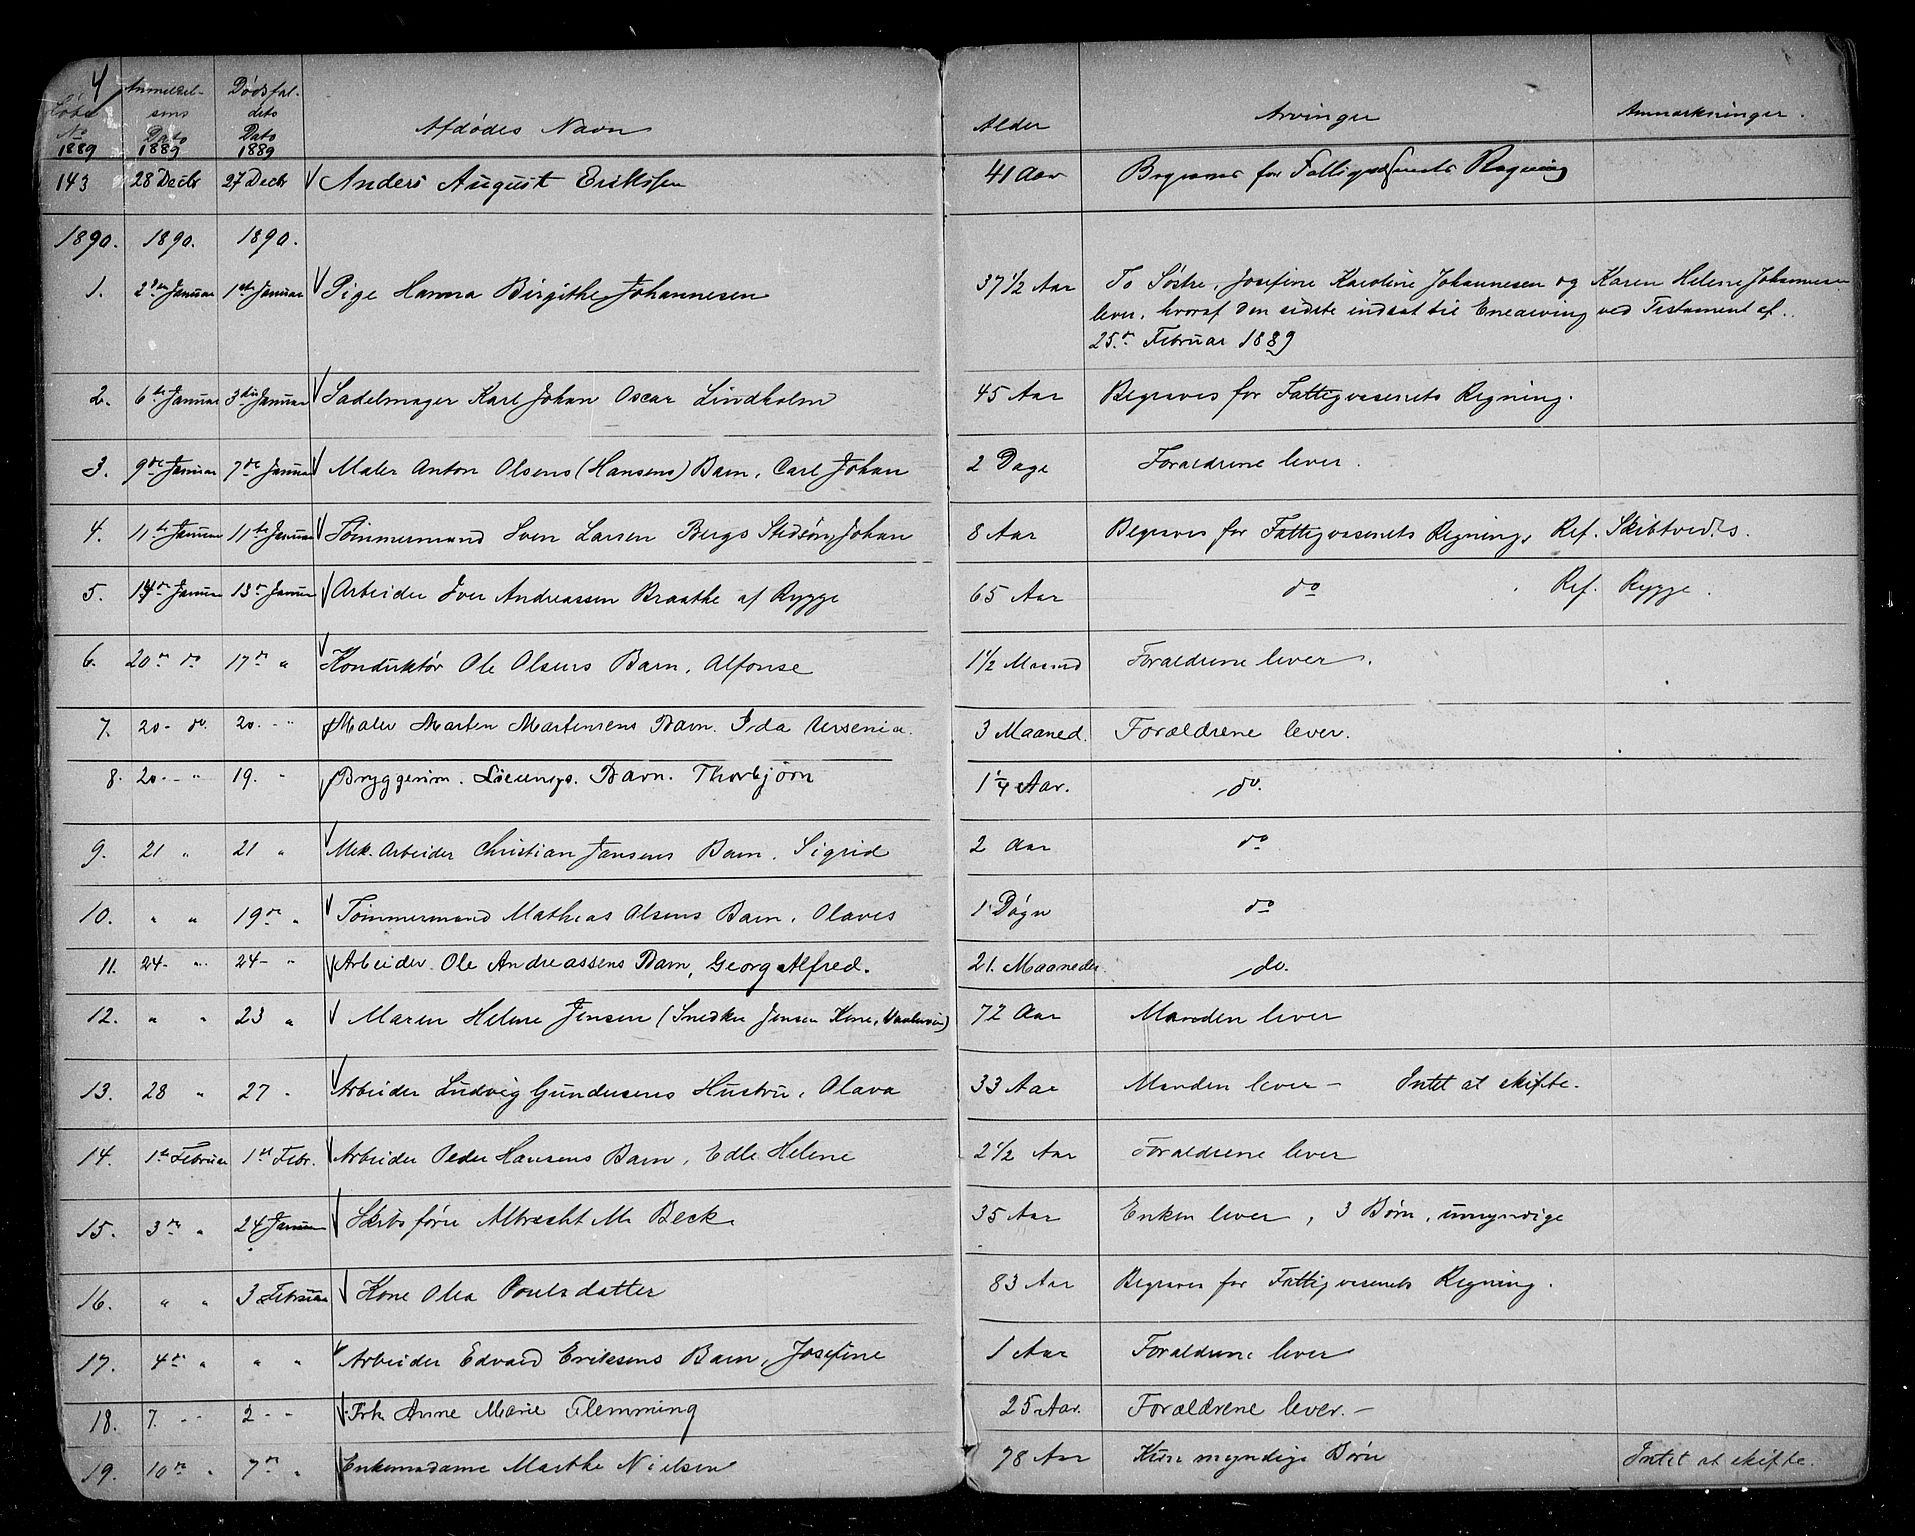 4
Løbe No 1889 Anmeldelsens Dato 1889 Dødsfaldets Dato 1889 Afdødes Navn Alder Arvinger Anmærkninger.
143 28 Decbr 27 Decbr Anders August Eriksen 41 Aar Begraves for Fattigvæsenets Regning
1890. 1890. 1890.
1. 2den Januar 1ste Januar Pige Hanna Birgithe Johannesen 37 1/2 Aar To Søstre, Josefine Karoline Johannesen og Karen Helene Johannesen
lever, hvoraf den sidste indsat til Enearving ved Testament af
25de Februar 1889
2. 6te Januar 3die Januar Sadelmager Karl Johan Oscar Lindholm 45 Aar Begraves for Fattigvæsenets Regning.
3. 9de Januar 7de Januar Maler Anton Olsens (Hansens) Barn, Carl Johan 2 Dage Forældrene lever.
4. 11te Januar 11te Januar Tømmermand Sven Larsen Bergs Stedsøn, Johan 8 Aar Begraves for Fattigvæsenets Regning, Ref. Skibtvedts.
5. 14de Januar 13de Januar Arbeider Iver Andreassen Braathe af Rygge 65 Aar do Ref. Rygge.
6. 20de do 17de " Konduktør Ole Olsens Barn, Alfonse 1 1/2 Maaned Forældrene lever.
7. 20- do. 20. - " Maler Marten Martensens Barn. Ida Ursenia. 3 Maaned. Forældrene lever.
8. 20 - " 19. " Bryggerim. Barn. Thorbjørn 1 1/4 Aar. do.
9. 21 " 21 " Mek. Arbeider Christian Jansens Barn, Sigrid 2 Aar do
10. " " 19de " Tømmermand Mathias Olsens Barn, Olaves 1 Døgn do
11. 24- " 24- " Arbeider. Ole Andreassens Barn, Georg Alfred. 21. Maaneder do.
12. " " 23 " Maren Helene Jensen (Snedker Jensen Kone, ) 72 Aar Manden lever
13. 28 " 27 " Arbeider Ludvig Gundersens Hustru, Olava 33 Aar Manden lever - Intet at skifte.
14. 1ste Februar 1ste Febr. Arbeider Peder Hansens Barn, Edle Helene 2 1/2 Aar Forældrene lever
15. 3de " 24 Januar Skibsfører Albrecht M. Beck 35 Aar Enken lever, 3 Børn, umyndige
16. " " 3 Februar Kone Olea Poulsdatter 83 Aar Begraves for Fattigvæsenets Regning.
17. 4de " " " Arbeider Edvard Eriksens Barn, Josefine 1 Aar Forældrene lever
18. 7. - - 2 - - Frk. Anne Marie Flemming 25 Aar. Forældrene lever. -
19. 10de " 7de " Enkemadame Marthe Nielsen 78 Aar Kun myndige Børn Intet at skifte.